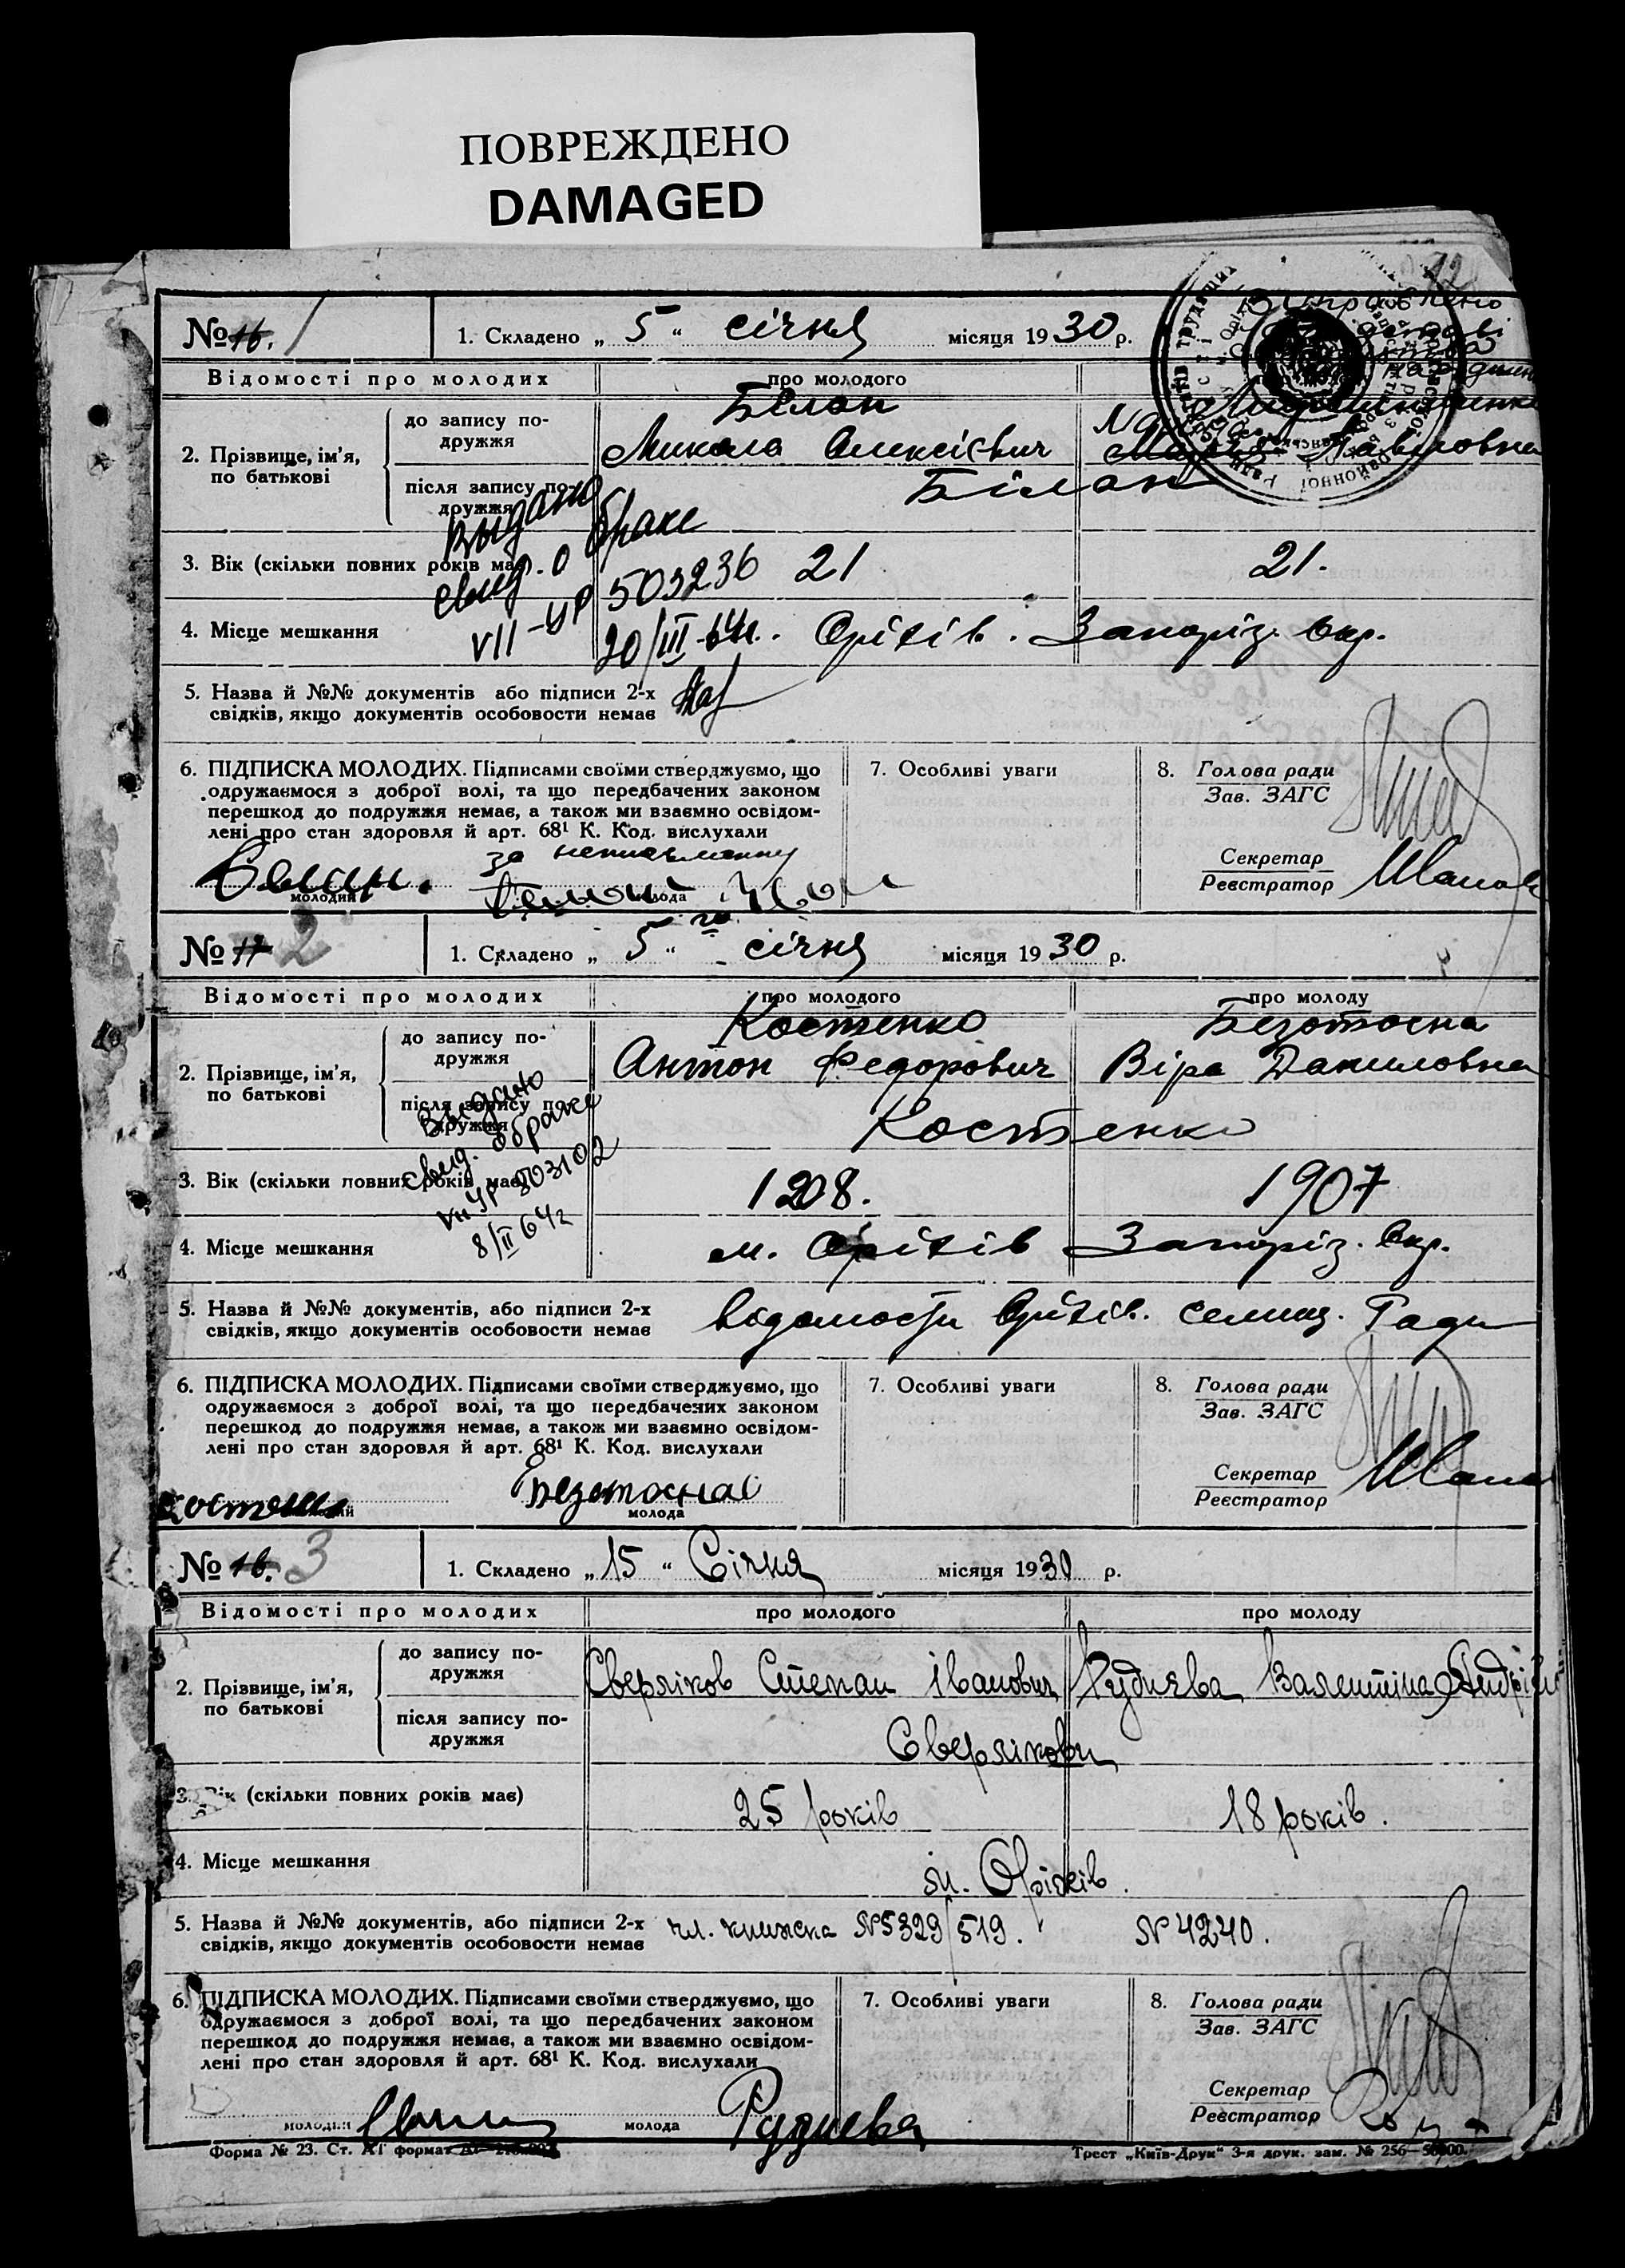 ПОВРЕЖДЕНО
DAMAGED
12
№ 16. 1
1. Складено „ 5 “ січня місяця 1930 р.
Відомості про молодих про молодого
2. Прізвище, ім’я, по батькові
до запису подружжя
Білан
Микола Олексієвич
Павловна
після запису подружжя
Білан
Выдано
свид. о браке
VII-УР 503236
20/III-64г.
3. Вік (скільки повних років має) 21 21.
4. Місце мешкання Оріхів. Запоріз. Окр.
5. Назва й №№ документів або підписи 2-х
свідків, якщо документів особовости немає
6. ПІДПИСКА МОЛОДИХ. Підписами своїми стверджуємо, що
одружаємося з доброї волі, та що передбачених законом
перешкод до подружжя немає, а також ми взаємно освідом-
лені про стан здоровля й арт. 68¹ К. Код. вислухали
за неписьменну
молодий молода
7. Особливі уваги
8. Голова ради
Зав. ЗАГС
Секретар
Реєстратор
№ 17 2
1. Складено „ 5 “ січня місяця 1930 р.
Відомості про молодих про молодого про молоду
2. Прізвище, ім’я, по батькові
до запису подружжя
Костенко Безотосна
Антон Федорович Віра Даниловна
після запису подружжя
Костенко
Выдано
свид. о браке
VII УР 503102
8/II 64г
3. Вік (скільки повних років має) 1908. 1907
4. Місце мешкання м. Оріхів Запоріз. Окр.
5. Назва й №№ документів, або підписи 2-х
свідків, якщо документів особовости немає
відомости Оріхів. селищ. Ради
6. ПІДПИСКА МОЛОДИХ. Підписами своїми стверджуємо, що
одружаємося з доброї волі, та що передбачених законом
перешкод до подружжя немає, а також ми взаємно освідом-
лені про стан здоровля й арт. 68¹ К. Код. вислухали
Безотосная
молода
7. Особливі уваги
8. Голова ради
Зав. ЗАГС
Секретар
Реєстратор
№ 18. 3
1. Складено „ 15 “ Січня місяця 1930 р.
Відомості про молодих про молодого про молоду
2. Прізвище, ім’я, по батькові
до запису подружжя
Сверліков Степан Іванович Руднєва Валентіна
після запису подружжя
Сверлікови
3. Вік (скільки повних років має) 25 років 18 років.
4. Місце мешкання м. Оріхів.
5. Назва й №№ документів, або підписи 2-х
свідків, якщо документів особовости немає
чл. книжка №5329/519. № 4240.
6. ПІДПИСКА МОЛОДИХ. Підписами своїми стверджуємо, що
одружаємося з доброї волі, та що передбачених законом
перешкод до подружжя немає, а також ми взаємно освідом-
лені про стан здоровля й арт. 68¹ К. Код. вислухали
молодий молода Руднева
7. Особливі уваги
8. Голова ради
Зав. ЗАГС
Секретар
Реєстратор
Форма № 23. Ст. А1 формат
Трест „Київ-Друк“ 3-я друк. зам. № 256—50000.